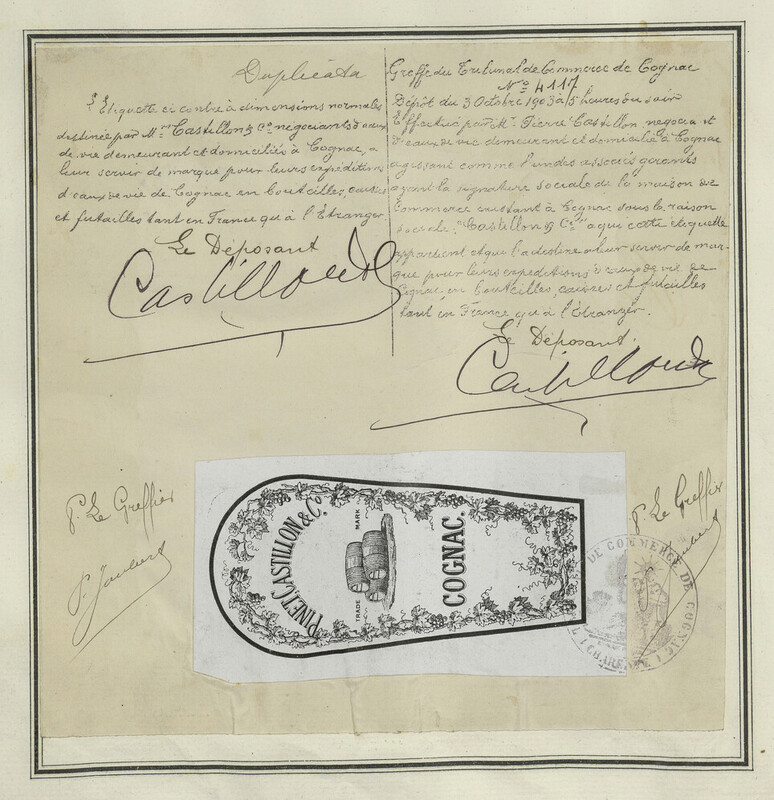 Duplicata
L'Etiquette ci contre à dimensions normales
destinée par Mrs Castillon & Co négociants d'eaux
de vie demeurant et domiciliés à Cognac, a
leur servir de marque pour leurs expéditions
d'eaux de vie de Cognac en bouteilles, caisses
et futailles tant en France qu'à l'Etranger
Le Déposant
Castillon
Greffe du Tribunal de Commerce de Cognac
No 4117
Dépôt du 3 Octobre 1903 à 5 heures du soir
Effectué par Mr Pierre Castillon négociant
d'eaux de vie demeurant et domicilié à Cognac
agissant comme l'un des associés gérants
ayant la signature sociale de la maison de
Commerce existant à Cognac sous la raison
sociale "Castillon & Co" a qui cette étiquette
appartient et qui l'a destine a leur servir de mar-
que pour leurs expéditions d'eaux de vie de
Cognac en bouteilles, caisses et futailles
tant en France qu'à l'Etranger.
Le Déposant.
Castillon
P. Le Greffier
P. Le Greffier
PINET, CASTILLON & Co.
TRADE MARK
COGNAC.
DE COMMERCE DE COGNAC